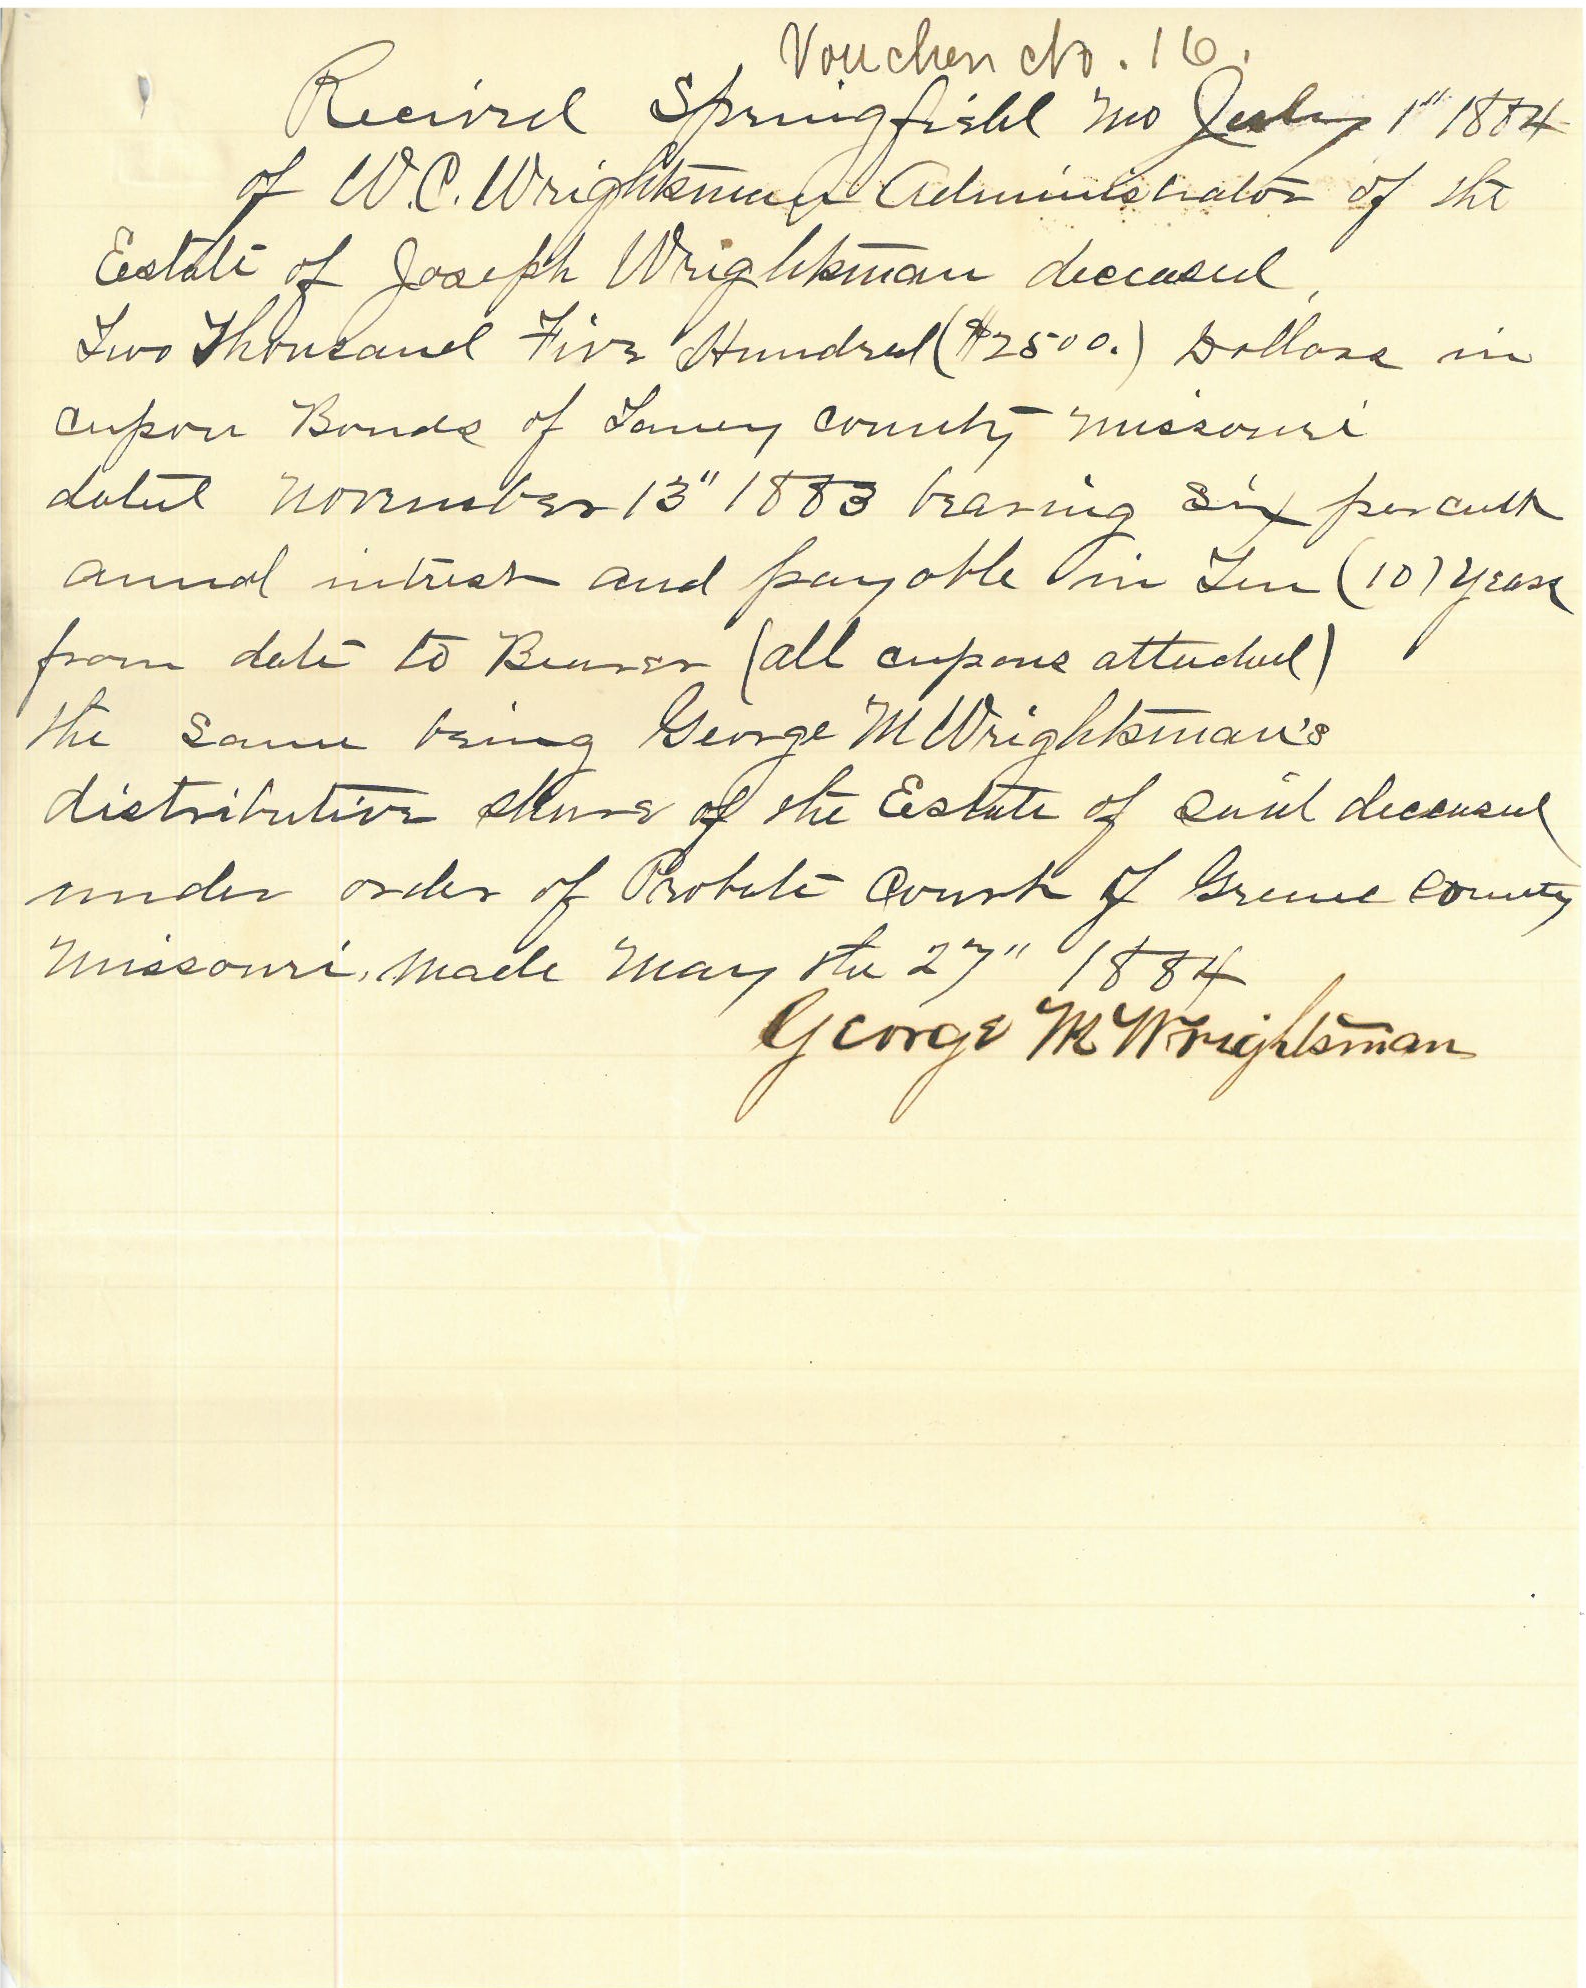 Voucher No. 16.
Recived Springfield Mo July 1" 1884
of W. C. Wrightsman Administrator of the
Estate of Joseph Wrightsman deceased,
Two Thousand Five Hundred ($2500.) Dollars in
cupon Bonds of Taney County Missouri
dated November 13" 1883 bearing six per cent
annal intrest and payable in Ten (10) years
from date to Bearer (all cupons attached)
the same being George M Wrightsman's
distributive share of the Estate of said deceased
under order of Probate Court of Greene County
Missouri, made May the 27" 1884
George M Wrightsman